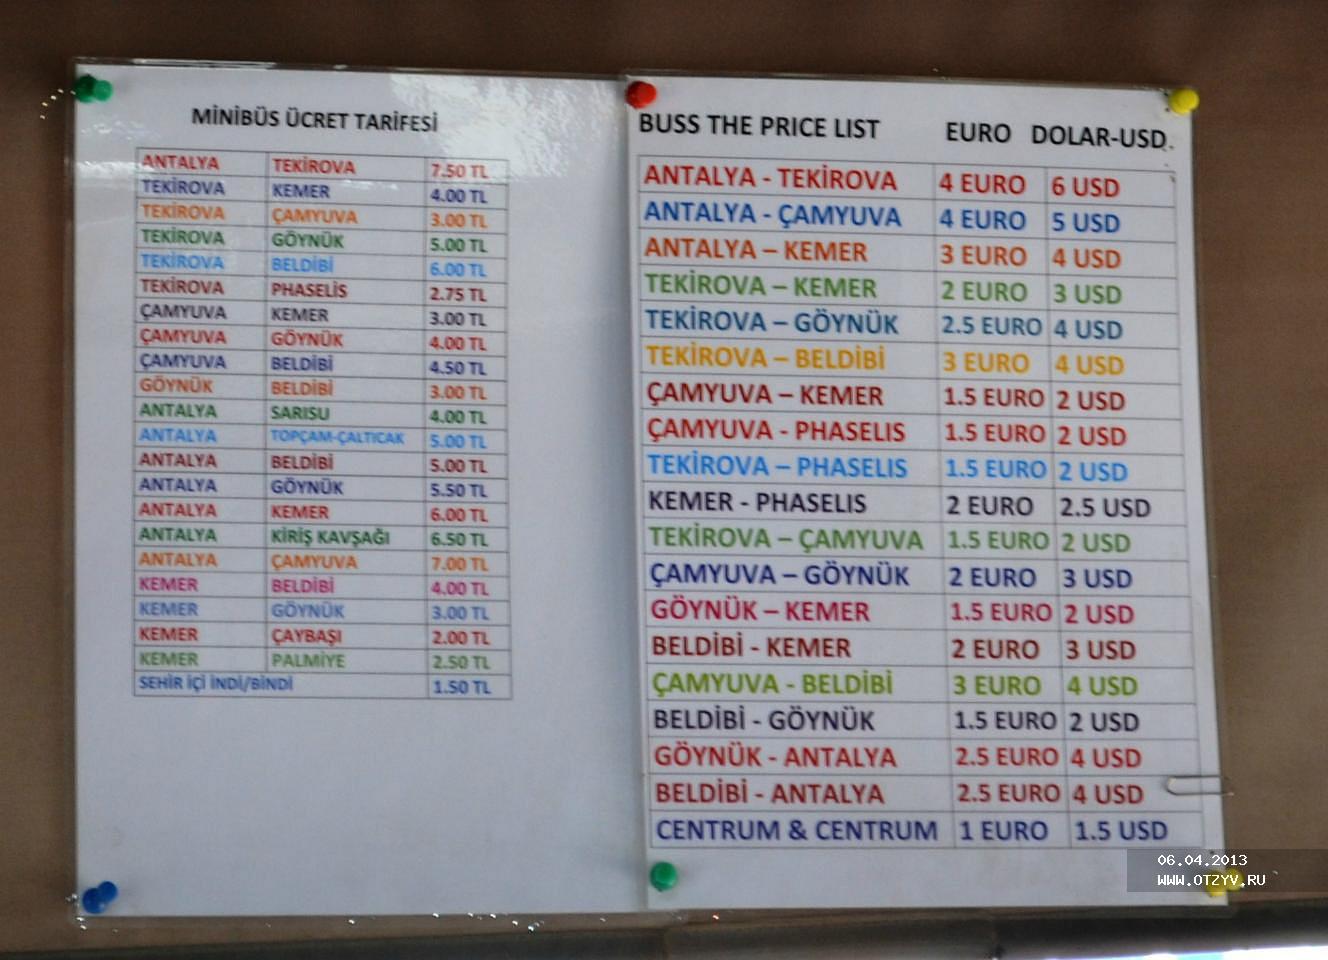 MİNİBÜS ÜCRET TARİFESİ
ANTALYA TEKİROVA 7.50 TL
TEKİROVA KEMER 4.00 TL
TEKİROVA ÇAMYUVA 3.00 TL
TEKİROVA GÖYNÜK 5.00 TL
TEKİROVA BELDİBİ 6.00 TL
TEKİROVA PHASELİS 2.75 TL
ÇAMYUVA KEMER 3.00 TL
ÇAMYUVA GÖYNÜK 4.00 TL
ÇAMYUVA BELDİBİ 4.50 TL
GÖYNÜK BELDİBİ 3.00 TL
ANTALYA SARISU 4.00 TL
ANTALYA TOPÇAM-ÇALTICAK 5.00 TL
ANTALYA BELDİBİ 5.00 TL
ANTALYA GÖYNÜK 5.50 TL
ANTALYA KEMER 6.00 TL
ANTALYA KİRİŞ KAVŞAĞI 6.50 TL
ANTALYA ÇAMYUVA 7.00 TL
KEMER BELDİBİ 4.00 TL
KEMER GÖYNÜK 3.00 TL
KEMER ÇAYBAŞI 2.00 TL
KEMER PALMİYE 2.50 TL
SEHİR İÇİ İNDİ/BİNDİ 1.50 TL
BUSS THE PRICE LIST EURO DOLAR-USD
ANTALYA - TEKİROVA 4 EURO 6 USD
ANTALYA - ÇAMYUVA 4 EURO 5 USD
ANTALYA – KEMER 3 EURO 4 USD
TEKİROVA – KEMER 2 EURO 3 USD
TEKİROVA – GÖYNÜK 2.5 EURO 4 USD
TEKİROVA – BELDİBİ 3 EURO 4 USD
ÇAMYUVA – KEMER 1.5 EURO 2 USD
ÇAMYUVA - PHASELIS 1.5 EURO 2 USD
TEKİROVA – PHASELIS 1.5 EURO 2 USD
KEMER - PHASELIS 2 EURO 2.5 USD
TEKİROVA – ÇAMYUVA 1.5 EURO 2 USD
ÇAMYUVA – GÖYNÜK 2 EURO 3 USD
GÖYNÜK – KEMER 1.5 EURO 2 USD
BELDİBİ - KEMER 2 EURO 3 USD
ÇAMYUVA - BELDİBİ 3 EURO 4 USD
BELDİBİ - GÖYNÜK 1.5 EURO 2 USD
GÖYNÜK - ANTALYA 2.5 EURO 4 USD
BELDİBİ - ANTALYA 2.5 EURO 4 USD
CENTRUM & CENTRUM 1 EURO 1.5 USD
06.04.2013
WWW.OTZYV.RU